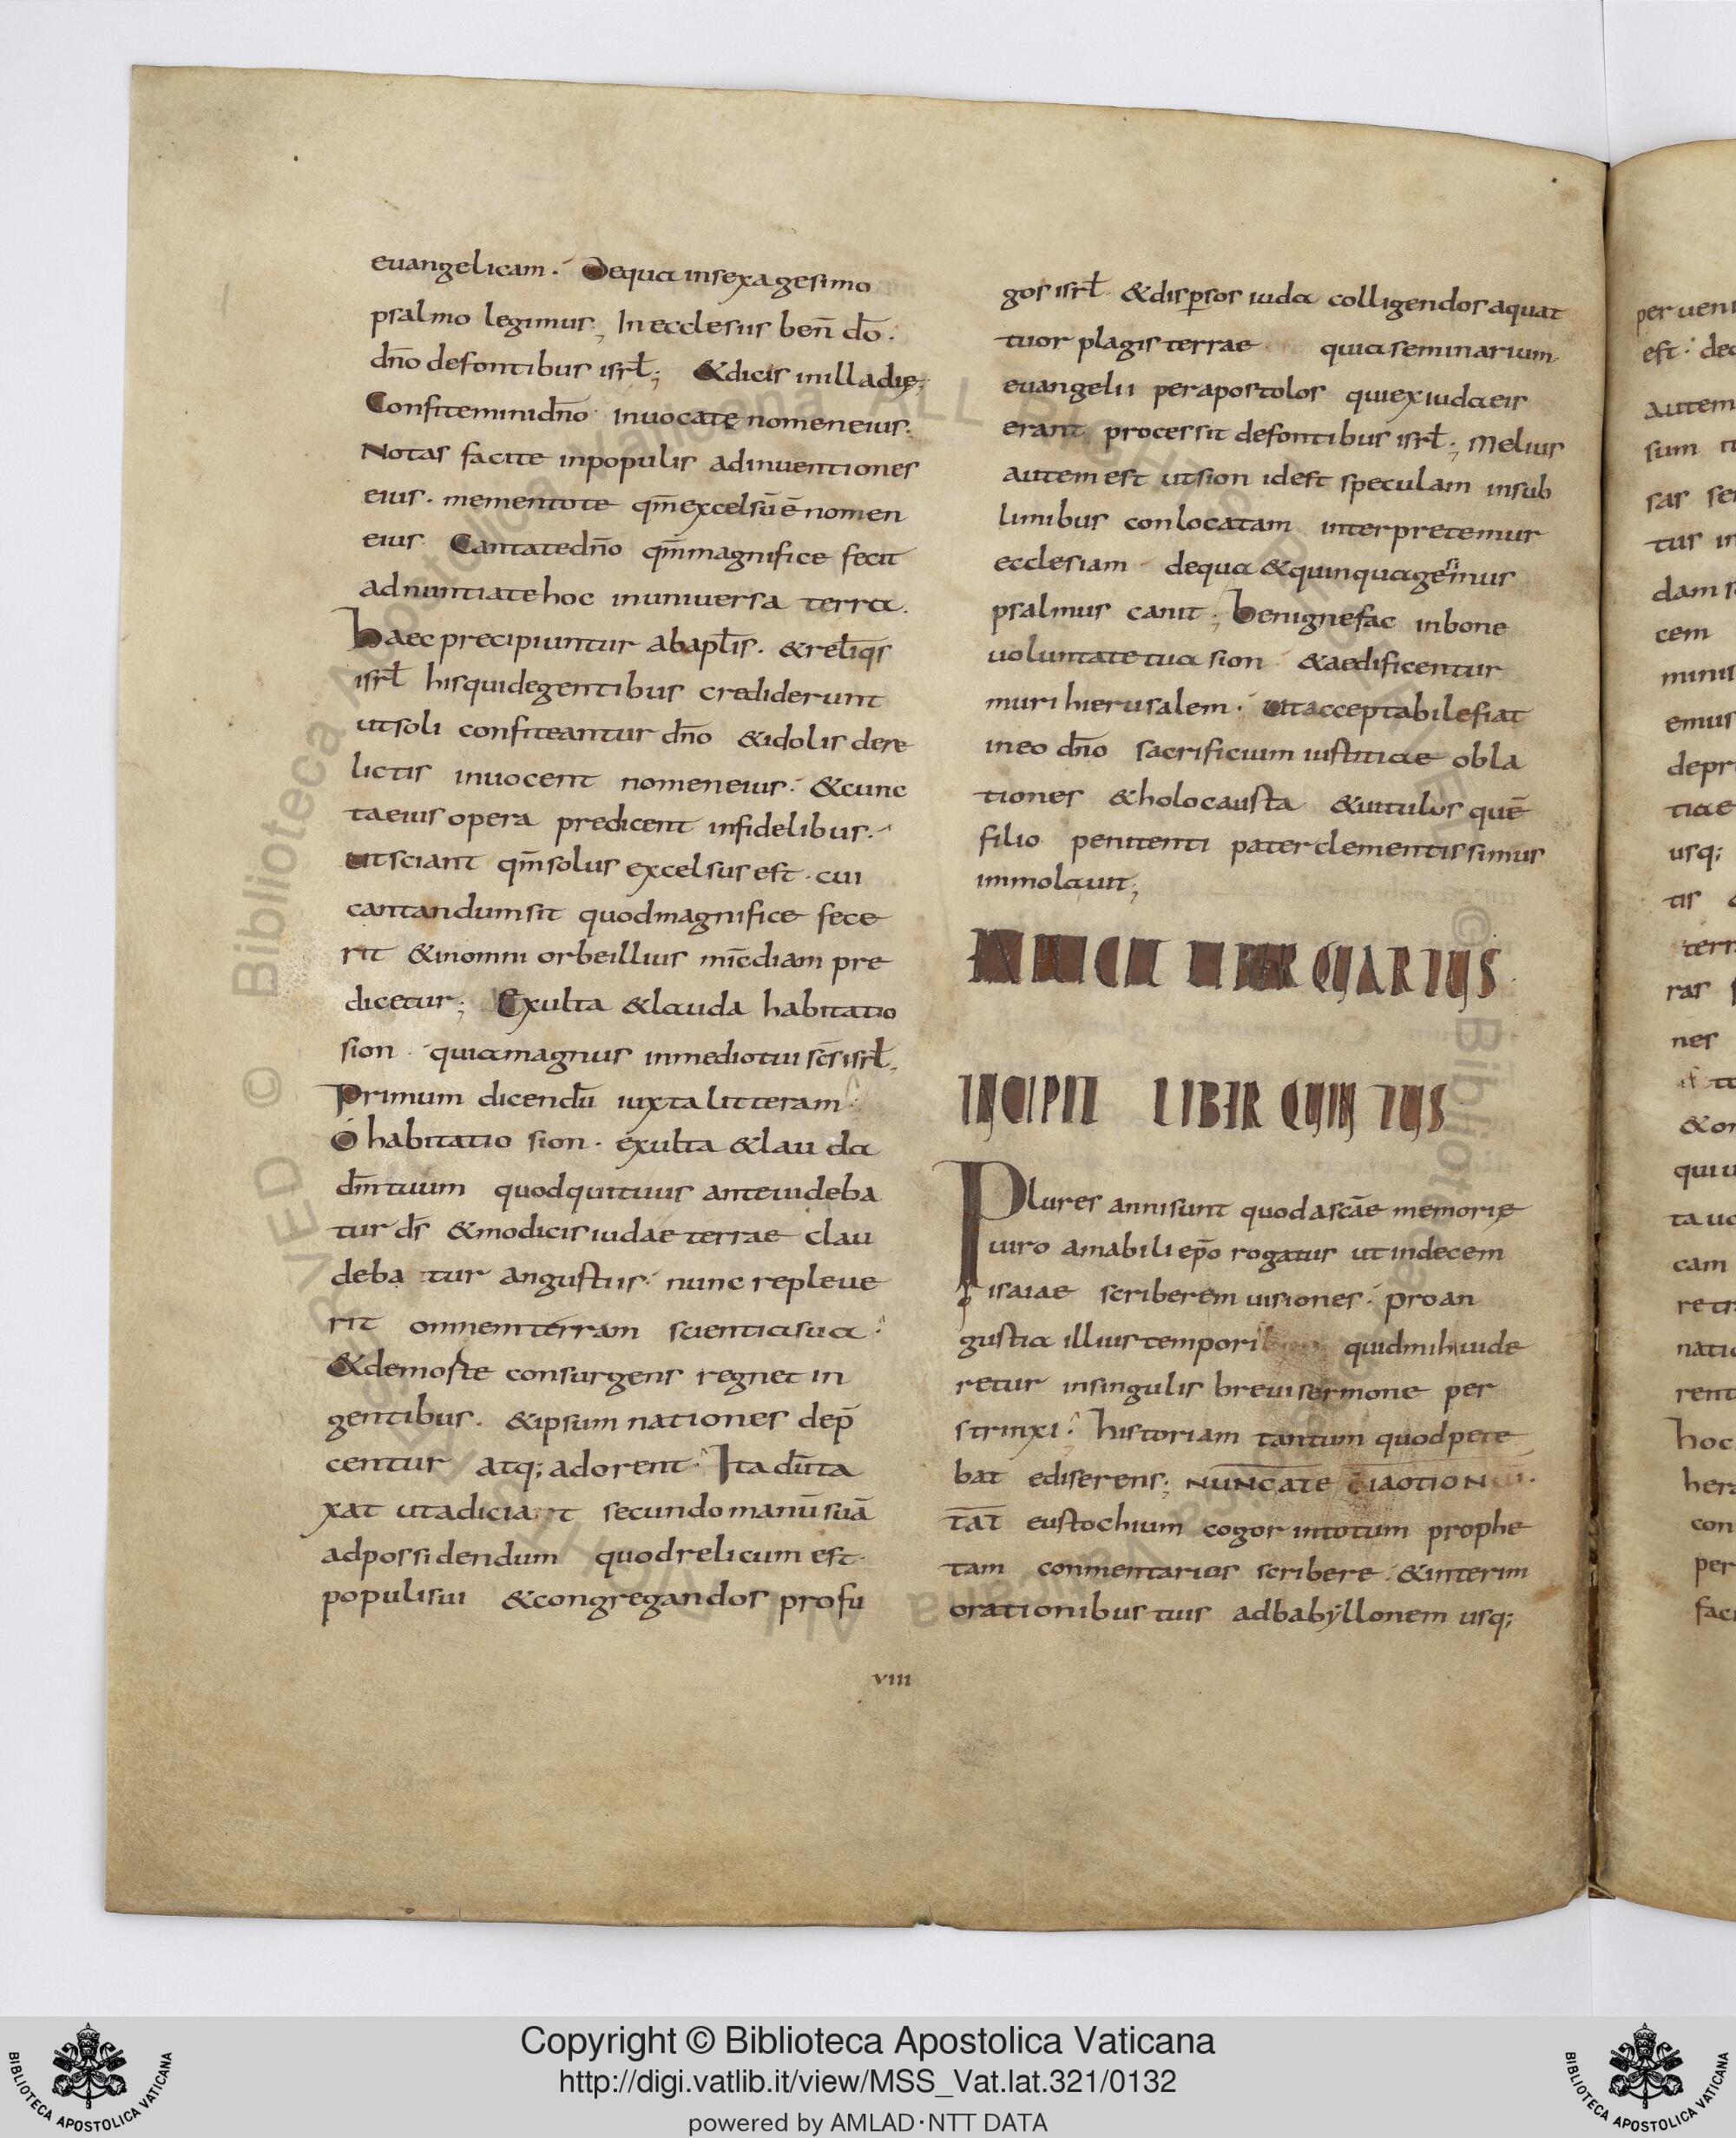 euangelicam. Dequa insexagesimo
psalmo legimus; In ecclesiis ben̄ do͞.
dn̄o defontibus isrł; &dicis inilladie;
Confiteminidn̄o inuocate nomeneius.
Notas facite inpopulis adinuentiones
eius. mementote qm̄excelsūē nomen
eius Cantatedn̄o qm̄magnifice fecit
adnuntiatehoc inuniuersa terra.
Haec precipiuntur abaptl̄is. &reliqis
isrł hisquidegentibus crediderunt
utsoli confiteantur dn̄o &idolis dere
lictis inuocent nomeneius. &cunc
taeius opera predicent infidelibus.
utsciant qm̄solus excelsus est. cui
cantandumsit quodmagnifice fece
rit &inomni orbeillius mīcdiam pre
dicetur; Exulta &lauda habitatio
sion. quiamagnus inmediotui sc̄sisrł.
Primum dicendū iuxtalitteram
O habitatio sion. exulta &lauda
dm̄tuum quodquituus anteuideba
tur ds̄ &modicisiudae terrae clau
debatur angustiis. nunc repleue
rit omnemterram scientiasua.
&demoste consurgens regnet in
gentibus. &ipsum nationes dep̄
centur atq; adorent. Ita dūta
xat utadiciat secundomanūsuā
adpossidendum quodrelicum est
populisui &congregandos profu
gos isrł &dispersos iuda colligendosaquat
tuor plagis terrae quiaseminarium
euangelii perapostolos quiexiudaeis
erant processit defontibus isrł; Melius
autem est utsion idest speculam insub
limibus conlocatam interpretemur
ecclesiam dequa &quinquagesimus
psalmus canit; Benignefac inbone
uoluntatetua sion &aedificentur
muri hierusalem. Utacceptabilefiat
ineo dn̄o sacrificium iustitiae obla
tiones &holocausta &uitulus quē
filio penitenti paterclementissimus
immolauit;
EXPLICIT LIBER QUARTUS
INCIPIT LIBER QUINTUS
Plures annisunt quodascāe memorie
uiro amabili ep̄o rogatus utindecem
isaiae scriberem uisiones. proan
gustia illiustempori quidmihiuide
retur insingulis breuisermone per
strinxi; historiam tantum quodpete
bat ediserens; NUNCATE
tāt eustochium cogor intotum prophe
tam conmentarios scribere. &interim
orationibus tuis adbabyllonem usq;
viii
Copyright © Biblioteca Apostolica Vaticana
http://digi.vatlib.it/view/MSS_Vat.lat.321/0132
powered by AMLAD·NTT DATA
BIBLIOTECA APOSTOLICA VATICANA
BIBLIOTECA APOSTOLICA VATICANA